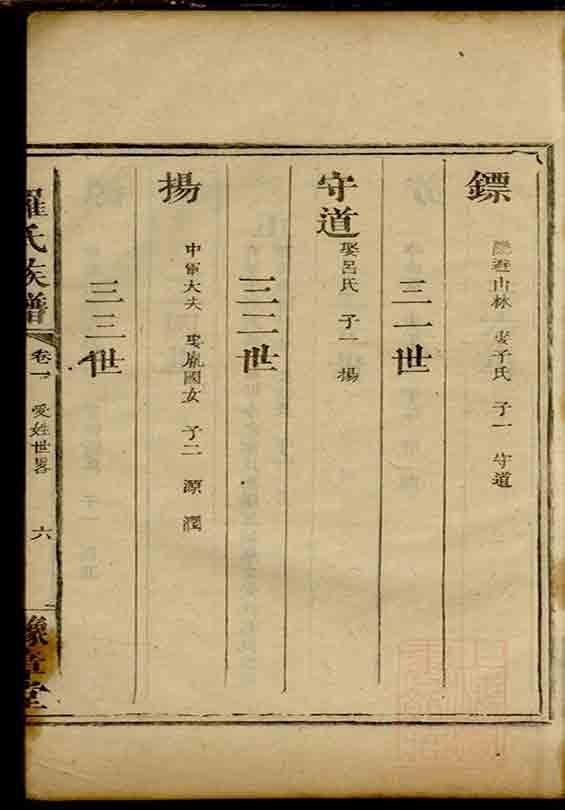 鏢 隱逰山林 妻子氏 子一 守道
三一世
守道 娶呂氏 子一 揚
三二世
揚 中軍大夫 娶胤國女 子二 源 潤
三三世
羅氏族譜 卷一 受姓世畧 六 豫章堂